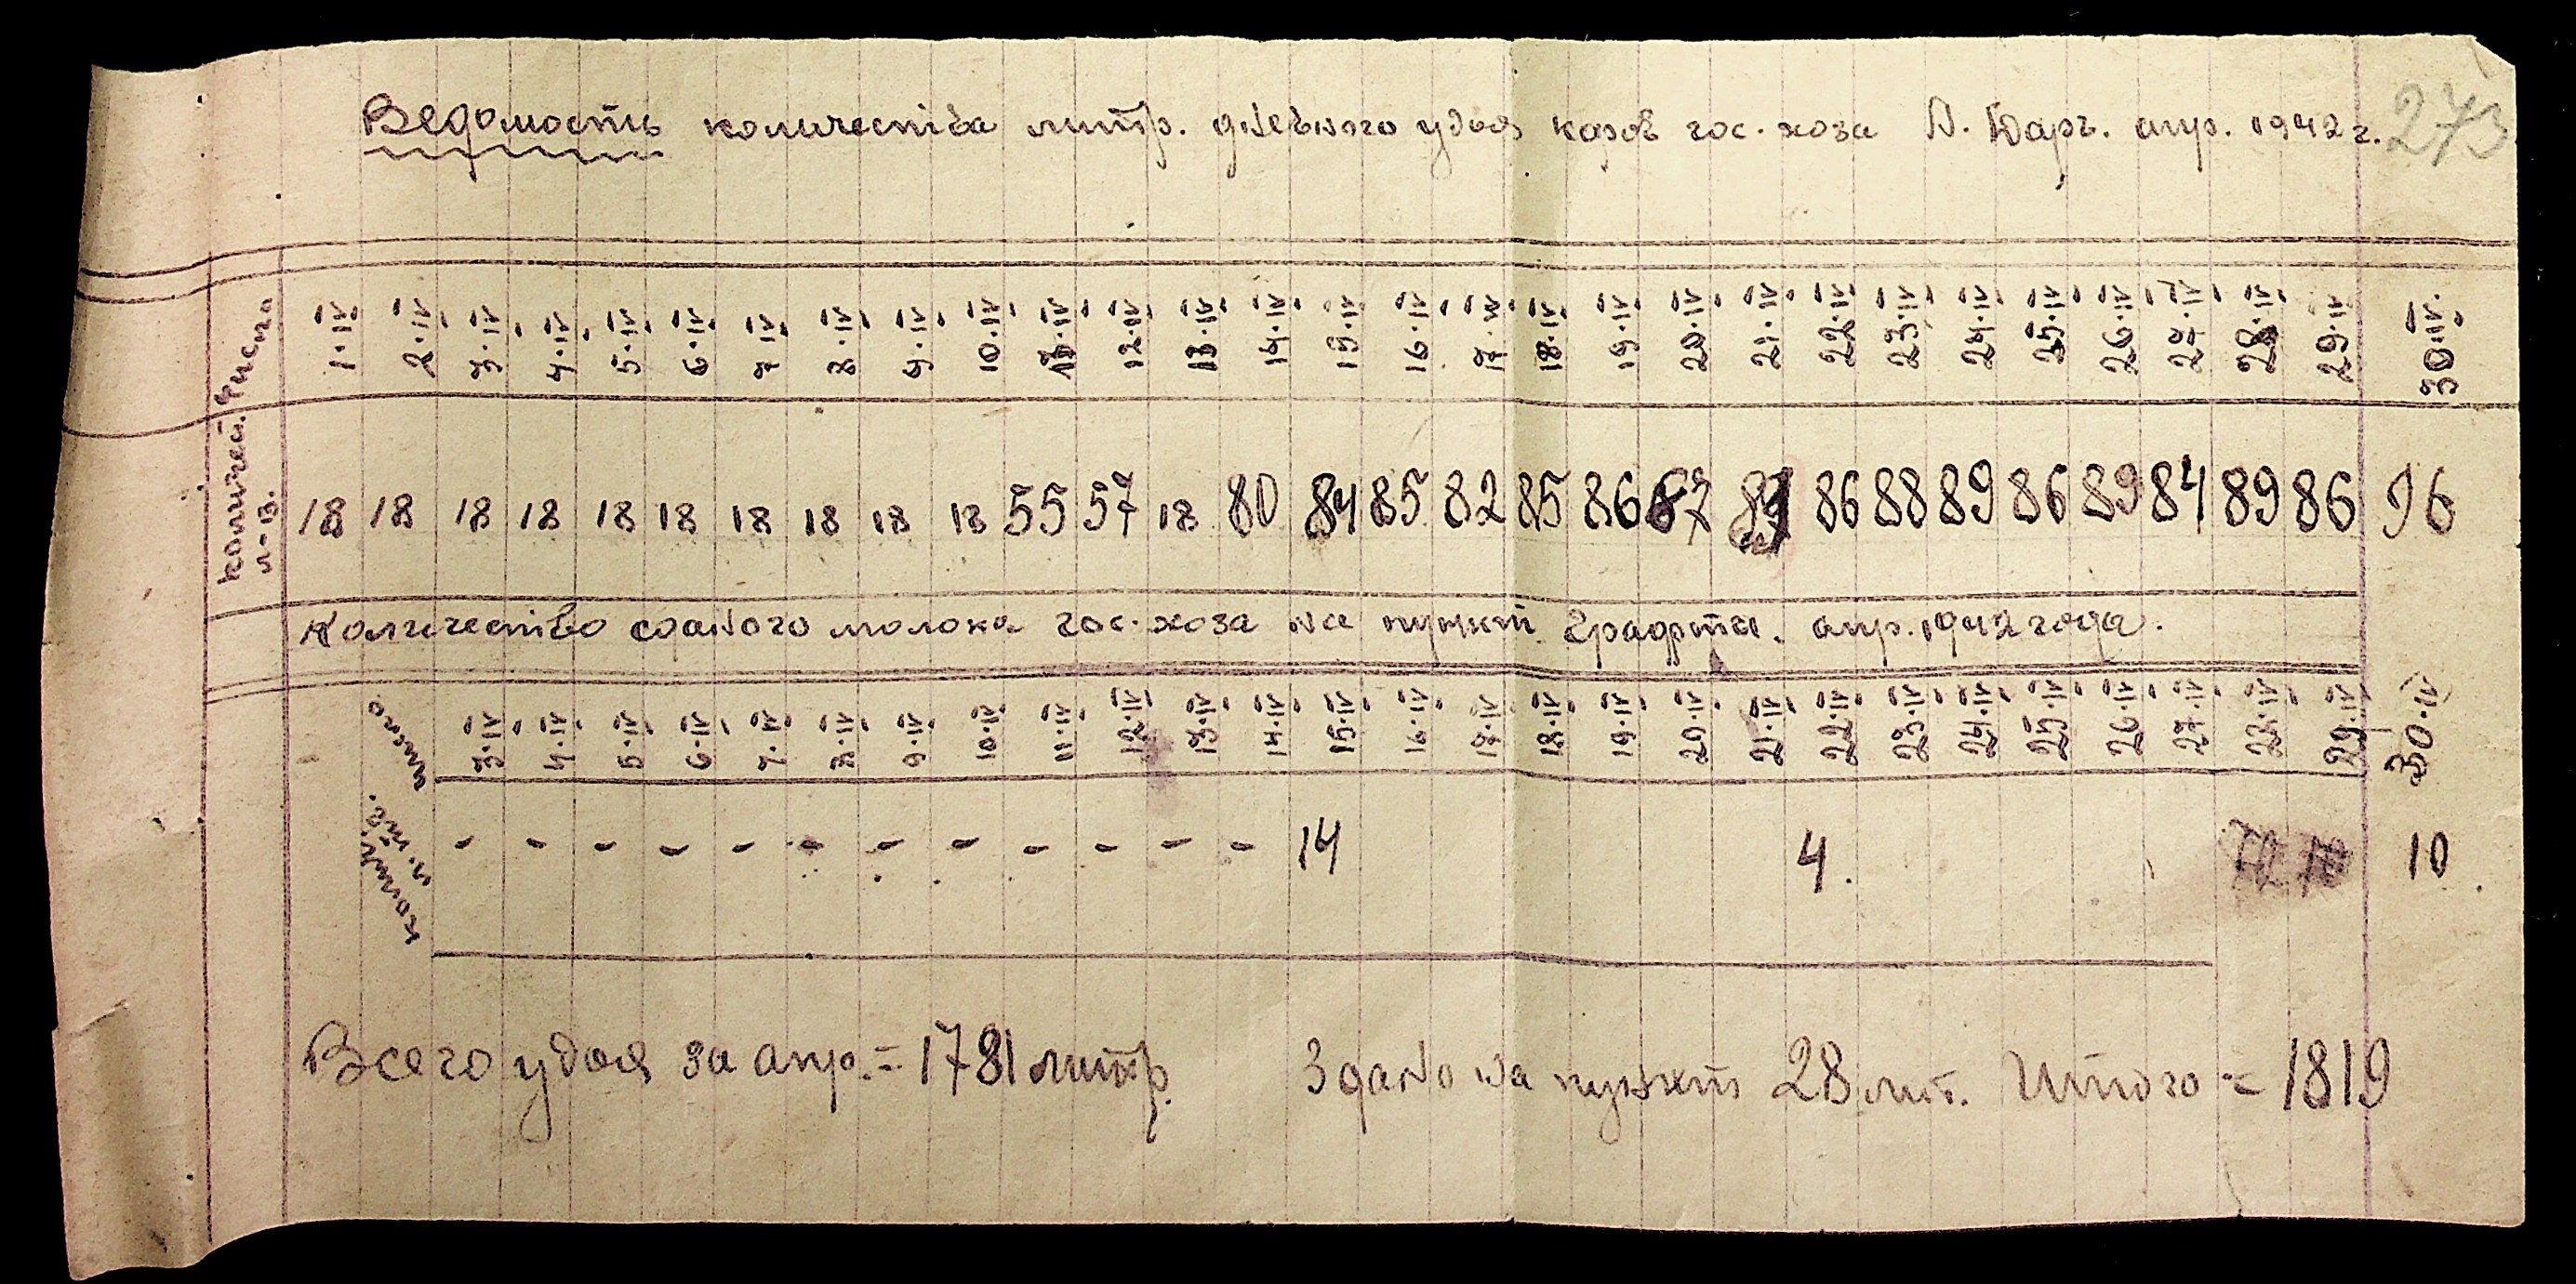 Ведомость количества литр. дневного удоя каров гос. хоза Д. Барг. апр. 1942 г. 273
Число 1.IV 2.IV 3.IV 4.IV 5.IV 6.IV 7.IV 8.IV 9.IV 10.IV 11.IV 12.IV 13.IV 14.IV 15.IV 16.IV 17.IV 18.IV 19.IV 20.IV 21.IV 22.IV 23.IV 24.IV 25.IV 26.IV 27.IV 28.IV 29.IV 30.IV.
количей. л-в. 18 18 18 18 18 18 18 18 18 18 55 57 18 80 84 85 82 85 86 87 86 88 89 86 89 84 89 86 96
Количество сданого молока гос. хоза на пункт апр. 1942 года.
число 3.IV 4.IV 5.IV 6.IV 7.IV 8.IV 9.IV 10.IV 11.IV 12.IV 13.IV 14.IV 15.IV 16.IV 17.IV 18.IV 19.IV 20.IV 21.IV 22.IV 23.IV 24.IV 25.IV 26.IV 27.IV 28.IV 29.IV 30.IV
- - - - - - - - - - - - 14 4. 10
Всего удоя за апр. = 1781 литр. Здано на пункт 28 лит. Итого = 1819